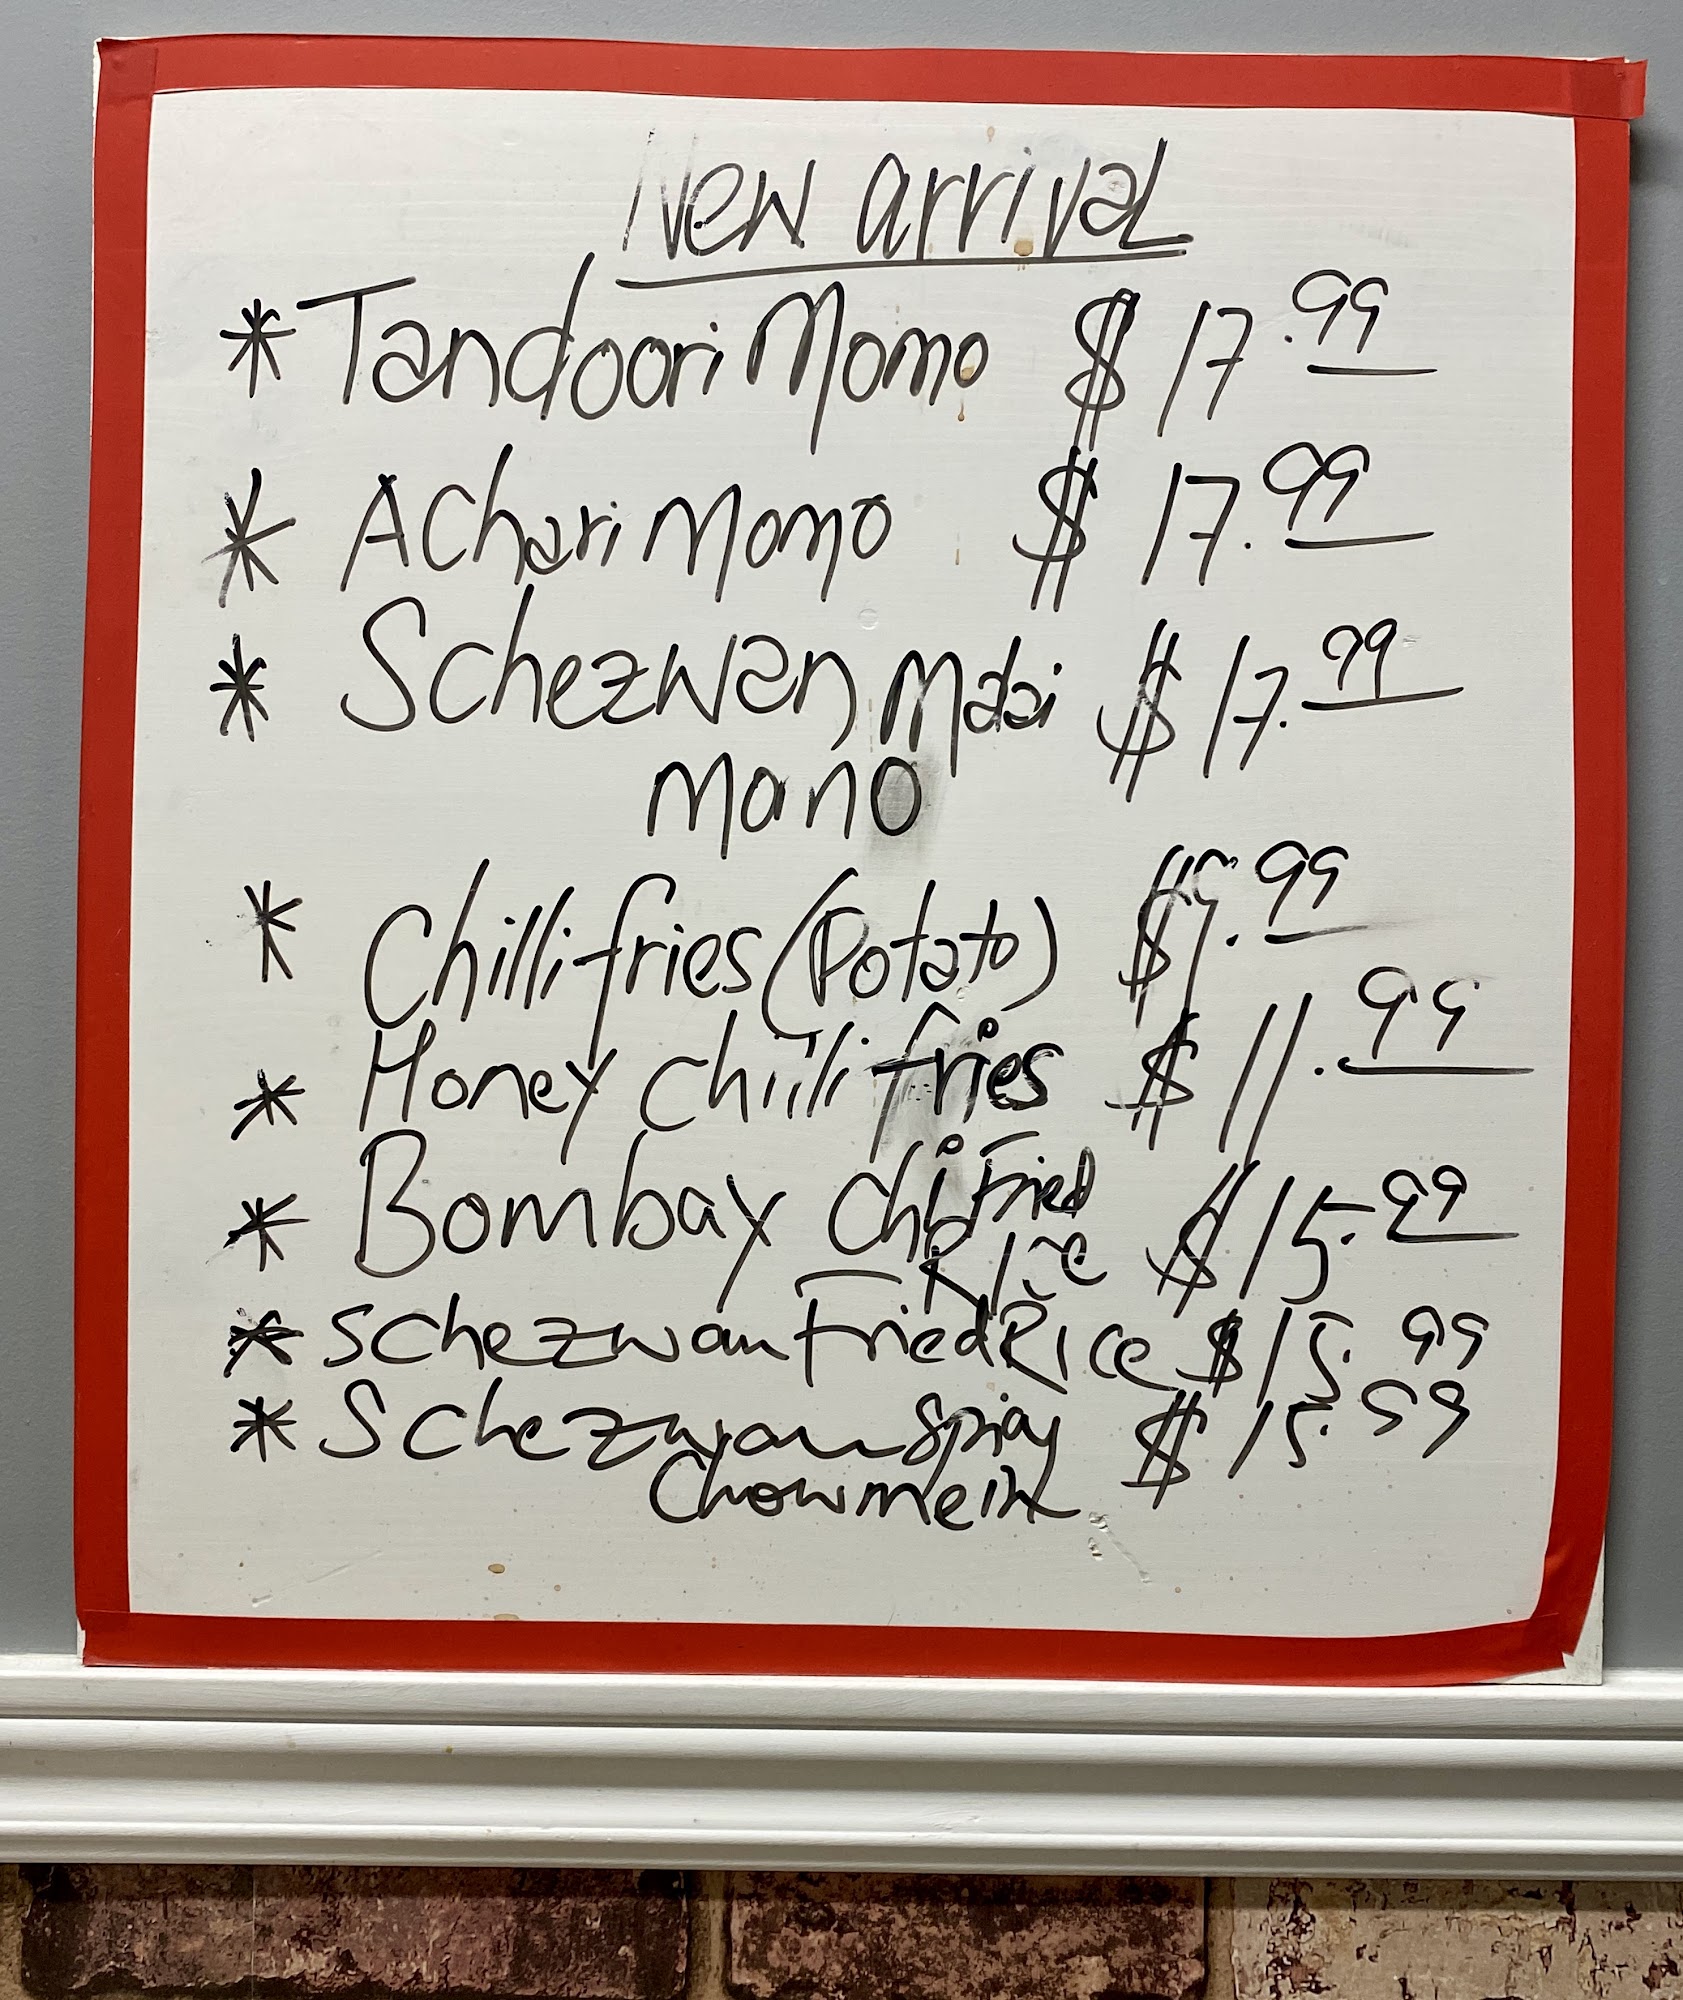 New arrival
* Tandoori Momo $ 17.99
* Achari Momo $ 17.99
* Schezwan Malai $ 17.99
Mono
* Chilli fries (Potato) $9.99
* Honey chilli fries $ 11.99
* Bombay Chi Fried $ 15.99
Rice
* Schezwan Fried Rice $ 15.99
* Schezwan Spicy $ 15.99
Chowmein